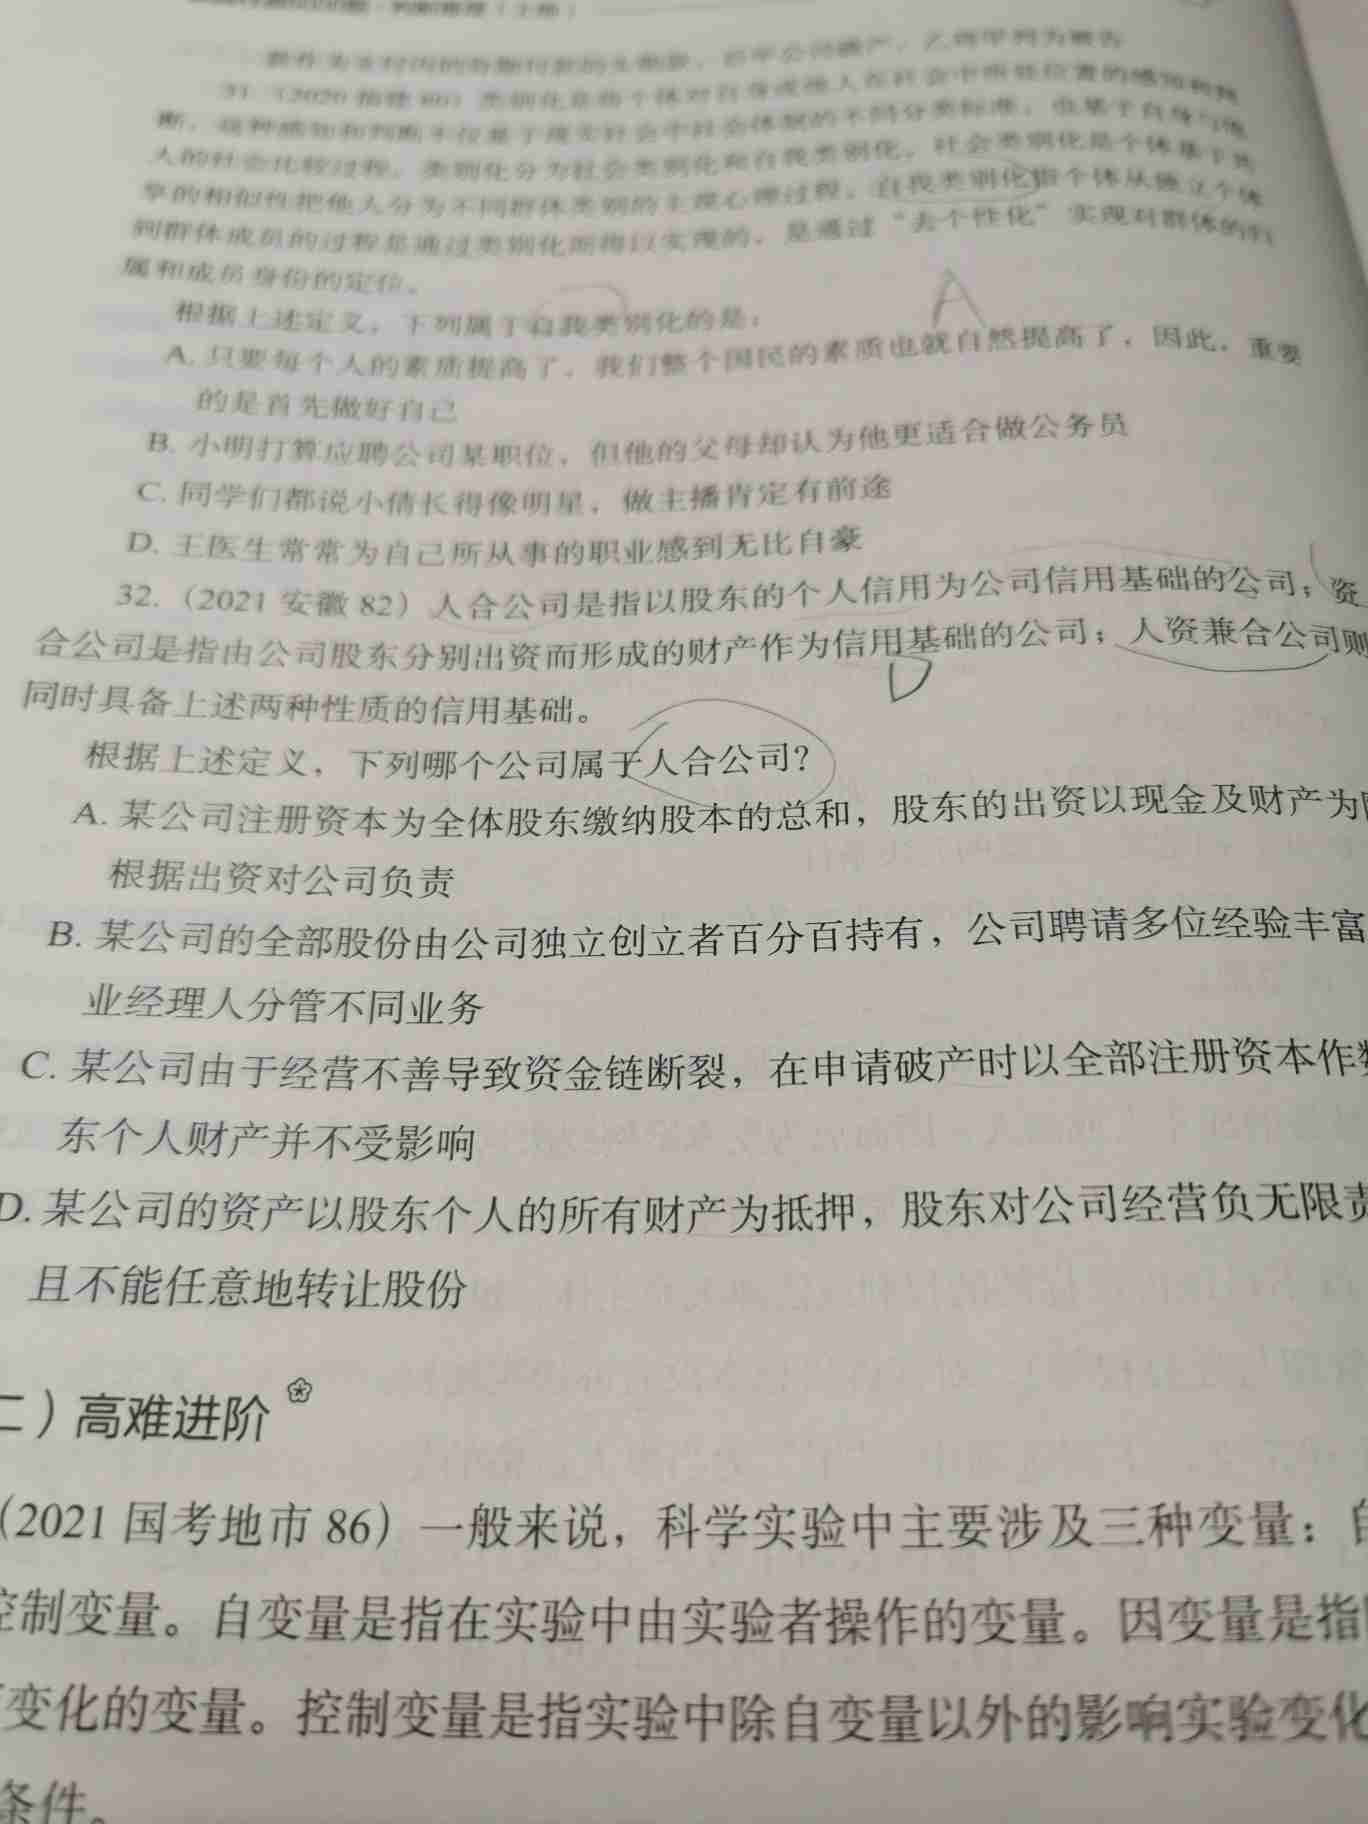 31.（2020
断，这种感知和判断不仅基于现实社会中社会体制的不同分类标准，也基于自身与他
人的社会比较过程。类别化分为社会类别化和自我类别化。社会类别化是个体基于共
享的相似性把他人分为不同群体类别的主观心理过程。自我类别化指个体从独立个体
到群体成员的过程是通过类别化而得以实现的，是通过“去个性化”实现对群体的归
属和成员身份的定位。
根据上述定义，下列属于自我类别化的是：
A
A. 只要每个人的素质提高了，我们整个国民的素质也就自然提高了，因此，重要
的是首先做好自己
B. 小明打算应聘公司某职位，但他的父母却认为他更适合做公务员
C. 同学们都说小倩长得像明星，做主播肯定有前途
D. 王医生常常为自己所从事的职业感到无比自豪
32.（2021 安徽 82）人合公司是指以股东的个人信用为公司信用基础的公司；资
合公司是指由公司股东分别出资而形成的财产作为信用基础的公司；人资兼合公司则
同时具备上述两种性质的信用基础。
D
根据上述定义，下列哪个公司属于人合公司？
A. 某公司注册资本为全体股东缴纳股本的总和，股东的出资以现金及财产为
根据出资对公司负责
B. 某公司的全部股份由公司独立创立者百分百持有，公司聘请多位经验丰富
业经理人分管不同业务
C. 某公司由于经营不善导致资金链断裂，在申请破产时以全部注册资本作
东个人财产并不受影响
D. 某公司的资产以股东个人的所有财产为抵押，股东对公司经营负无限责
且不能任意地转让股份
二）高难进阶
（2021 国考地市 86）一般来说，科学实验中主要涉及三种变量：自
控制变量。自变量是指在实验中由实验者操作的变量。因变量是指
变化的变量。控制变量是指实验中除自变量以外的影响实验变化
条件。